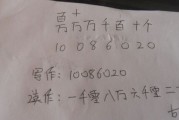 百十
万万万千百十个
10086020
写作：10086020
读作：一千零八万六千零二十